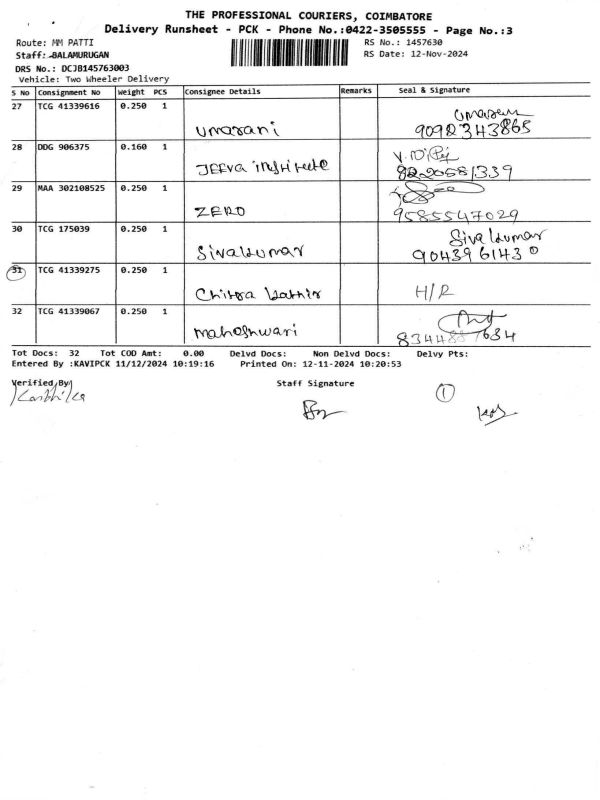 THE PROFESSIONAL COURIERS, COIMBATORE
Delivery Runsheet - PCK - Phone No.:0422-3505555 - Page No.:3
Route: MM PATTI RS No.: 1457630
Staff: BALAMURUGAN RS Date: 12-Nov-2024
DRS No.: DCJB145763003
Vehicle: Two Wheeler Delivery
S No Consignment No Weight PCS Consignee Details Remarks Seal & Signature
27 TCG 41339616 0.250 1
umarani 9092343865
28 DDG 906375 0.160 1
JEEva institute
29 MAA 302108525 0.250 1
ZERO 9585547029
30 TCG 175039 0.250 1 Siva kumar
Sivakumar 9043961430
31 TCG 41339275 0.250 1 H/R
Chitra kathir
32 TCG 41339067 0.250 1
maheshwari
Tot Docs: 32 Tot COD Amt: 0.00 Delvd Docs: Non Delvd Docs: Delvy Pts:
Entered By :KAVIPCK 11/12/2024 10:19:16 Printed On: 12-11-2024 10:20:53
Verified By Staff Signature
1